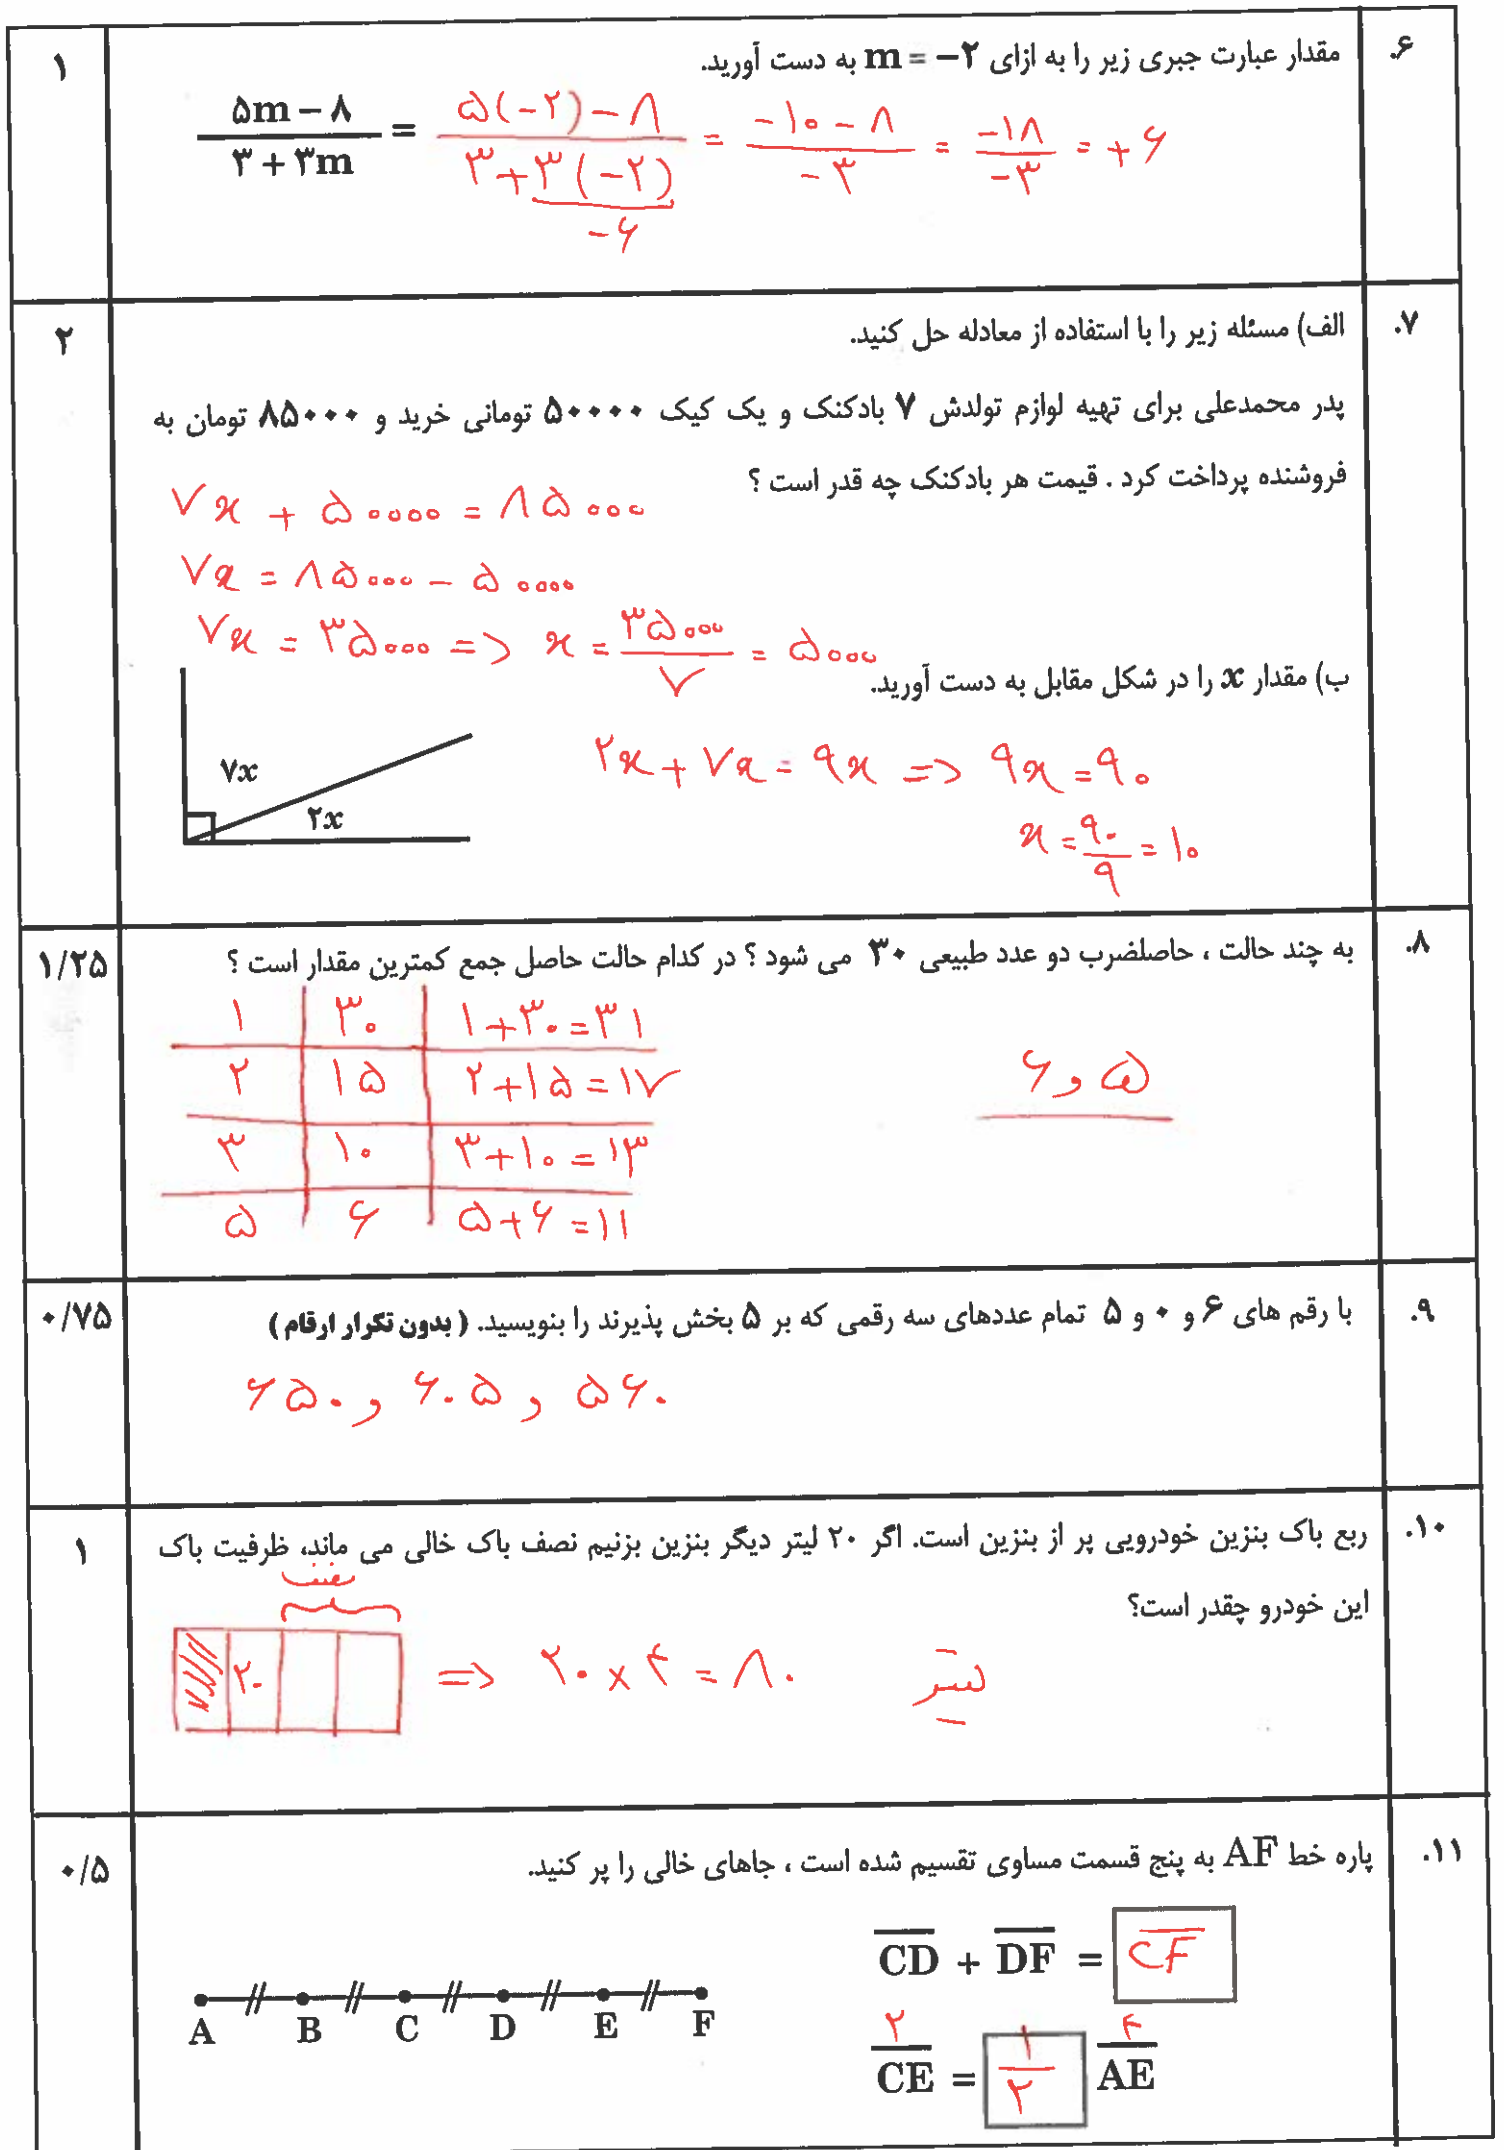 ۶. مقدار عبارت جبری زیر را به ازای m = −۲ به دست آورید. ۱
(۵m − ۸)/(۳ + ۳m) = (۵(−۲) − ۸)/(۳ + ۳(−۲)) = (−۱۰ − ۸)/(−۳) = (−۱۸)/(−۳) = +۶
−۶
۷. الف) مسئله زیر را با استفاده از معادله حل کنید. ۲
پدر محمدعلی برای تهیه لوازم تولدش ۷ بادکنک و یک کیک ۵۰۰۰۰ تومانی خرید و ۸۵۰۰۰ تومان به
فروشنده پرداخت کرد . قیمت هر بادکنک چه قدر است ؟
۷x + ۵۰۰۰۰ = ۸۵۰۰۰
۷x = ۸۵۰۰۰ − ۵۰۰۰۰
۷x = ۳۵۰۰۰ => x = ۳۵۰۰۰/۷ = ۵۰۰۰
ب) مقدار x را در شکل مقابل به دست آورید.
۷x
۲x
۲x + ۷x = ۹x => ۹x = ۹۰
x = ۹۰/۹ = ۱۰
۸. به چند حالت ، حاصلضرب دو عدد طبیعی ۳۰ می شود ؟ در کدام حالت حاصل جمع کمترین مقدار است ؟ ۱/۲۵
۱ ۳۰ ۱+۳۰=۳۱
۲ ۱۵ ۲+۱۵=۱۷
۳ ۱۰ ۳+۱۰=۱۳
۵ ۶ ۵+۶=۱۱
۵ و ۶
۹. با رقم های ۶ و ۰ و ۵ تمام عددهای سه رقمی که بر ۵ بخش پذیرند را بنویسید. ( بدون تکرار ارقام ) ۰/۷۵
۶۵۰ و ۶۰۵ و ۵۶۰
۱۰. ربع باک بنزین خودرویی پر از بنزین است. اگر ۲۰ لیتر دیگر بنزین بزنیم نصف باک خالی می ماند، ظرفیت باک ۱
این خودرو چقدر است؟
نصف
۲۰ => ۲۰ × ۴ = ۸۰ لیتر
۱۱. پاره خط AF به پنج قسمت مساوی تقسیم شده است ، جاهای خالی را پر کنید. ۰/۵
CD + DF = CF
A B C D E F
۲ ۴
CE = ۱/۲ AE